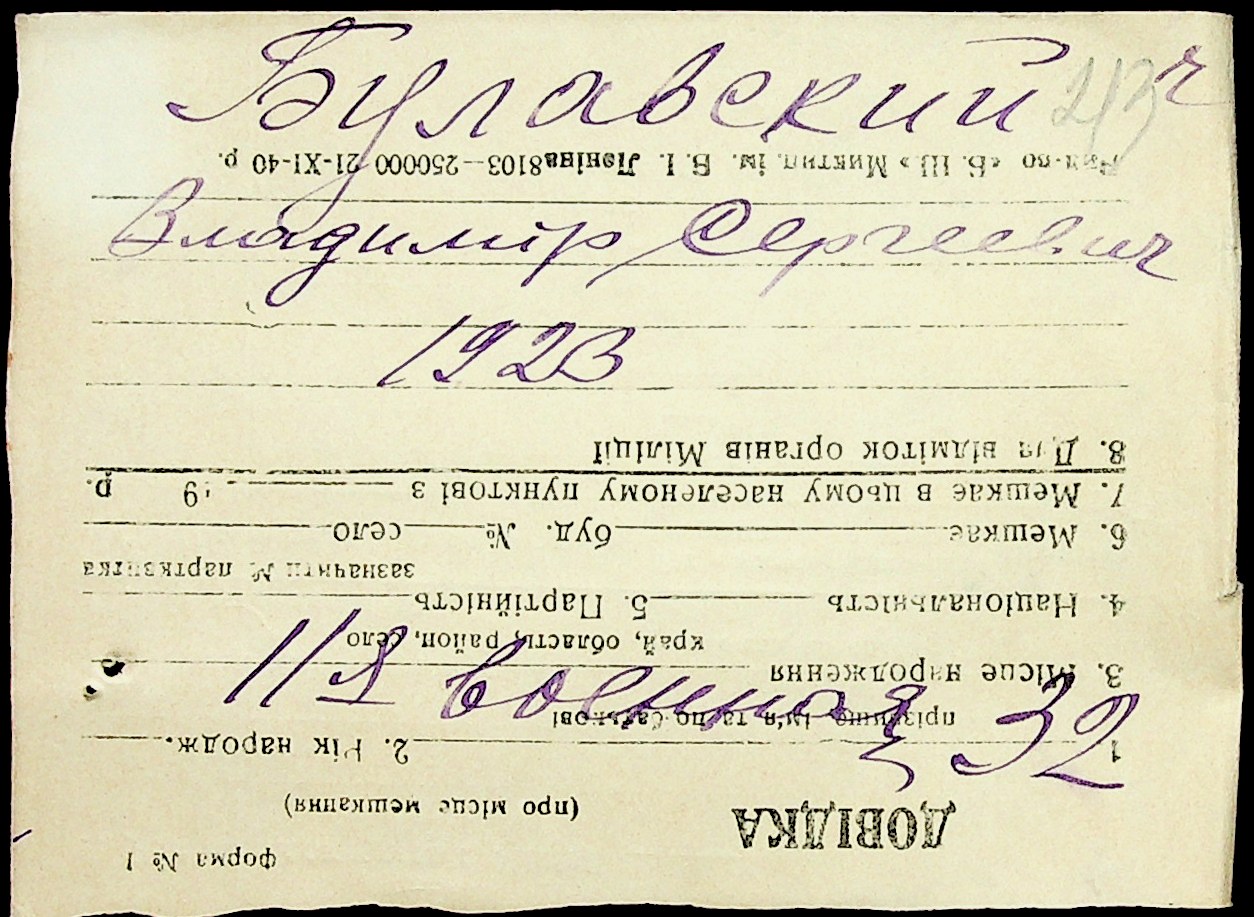 Булавский ч
213
Владимір Сергеевич
1923
11я военная 32
форма № 1
ДОВІДКА (про місце мешкання)
1 2. Рік народж.
прізвище, ім'я та по батькові
3. Місце народження
край, область, район, село
4. Національність 5. Партійність
зазначити № партквитка
6. Мешкає буд. № село
7. Мешкає в цьому населеному пункті з 19 р.
8. Для відміток органів Міліції
«Б. Ш.» ім. В. І. Леніна 8103—250000 21-XI-40 р.